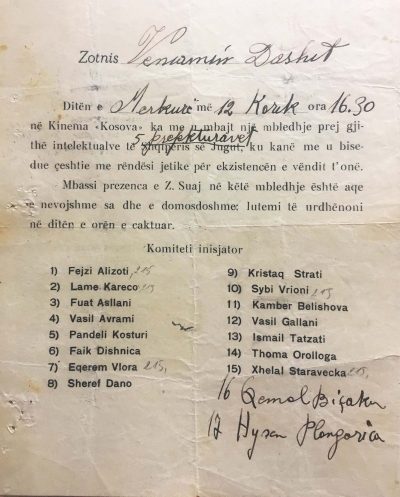 Zotnis Veniamin Dashit
Ditën e Merkurë më 12 Korik ora 16.30
në Kinema «Kosova» ka me u mbajt një mbledhje prej gji-
5 prefekturavet
thë intelektualve të Shqipëris së Jugut, ku kanë me u bise-
due çeshtie me rëndësi jetike për ekzistencën e vëndit t'onë.
Mbassi prezenca e Z. Suaj në këtë mbledhje është aqe
e nevojshme sa dhe e domosdoshme; lutemi të urdhënoni
në ditën e orën e caktuar.
Komiteti inisjator
1) Fejzi Alizoti
2) Lame Kareco
3) Fuat Asllani
4) Vasil Avrami
5) Pandeli Kosturi
6) Faik Dishnica
7) Eqerem Vlora
8) Sheref Dano
9) Kristaq Strati
10) Sybi Vrioni
11) Kamber Belishova
12) Vasil Gallani
13) Ismail Tatzati
14) Thoma Orolloga
15) Xhelal Staravecka
16 Qemal Biçaku
17 Hysen Plangarica